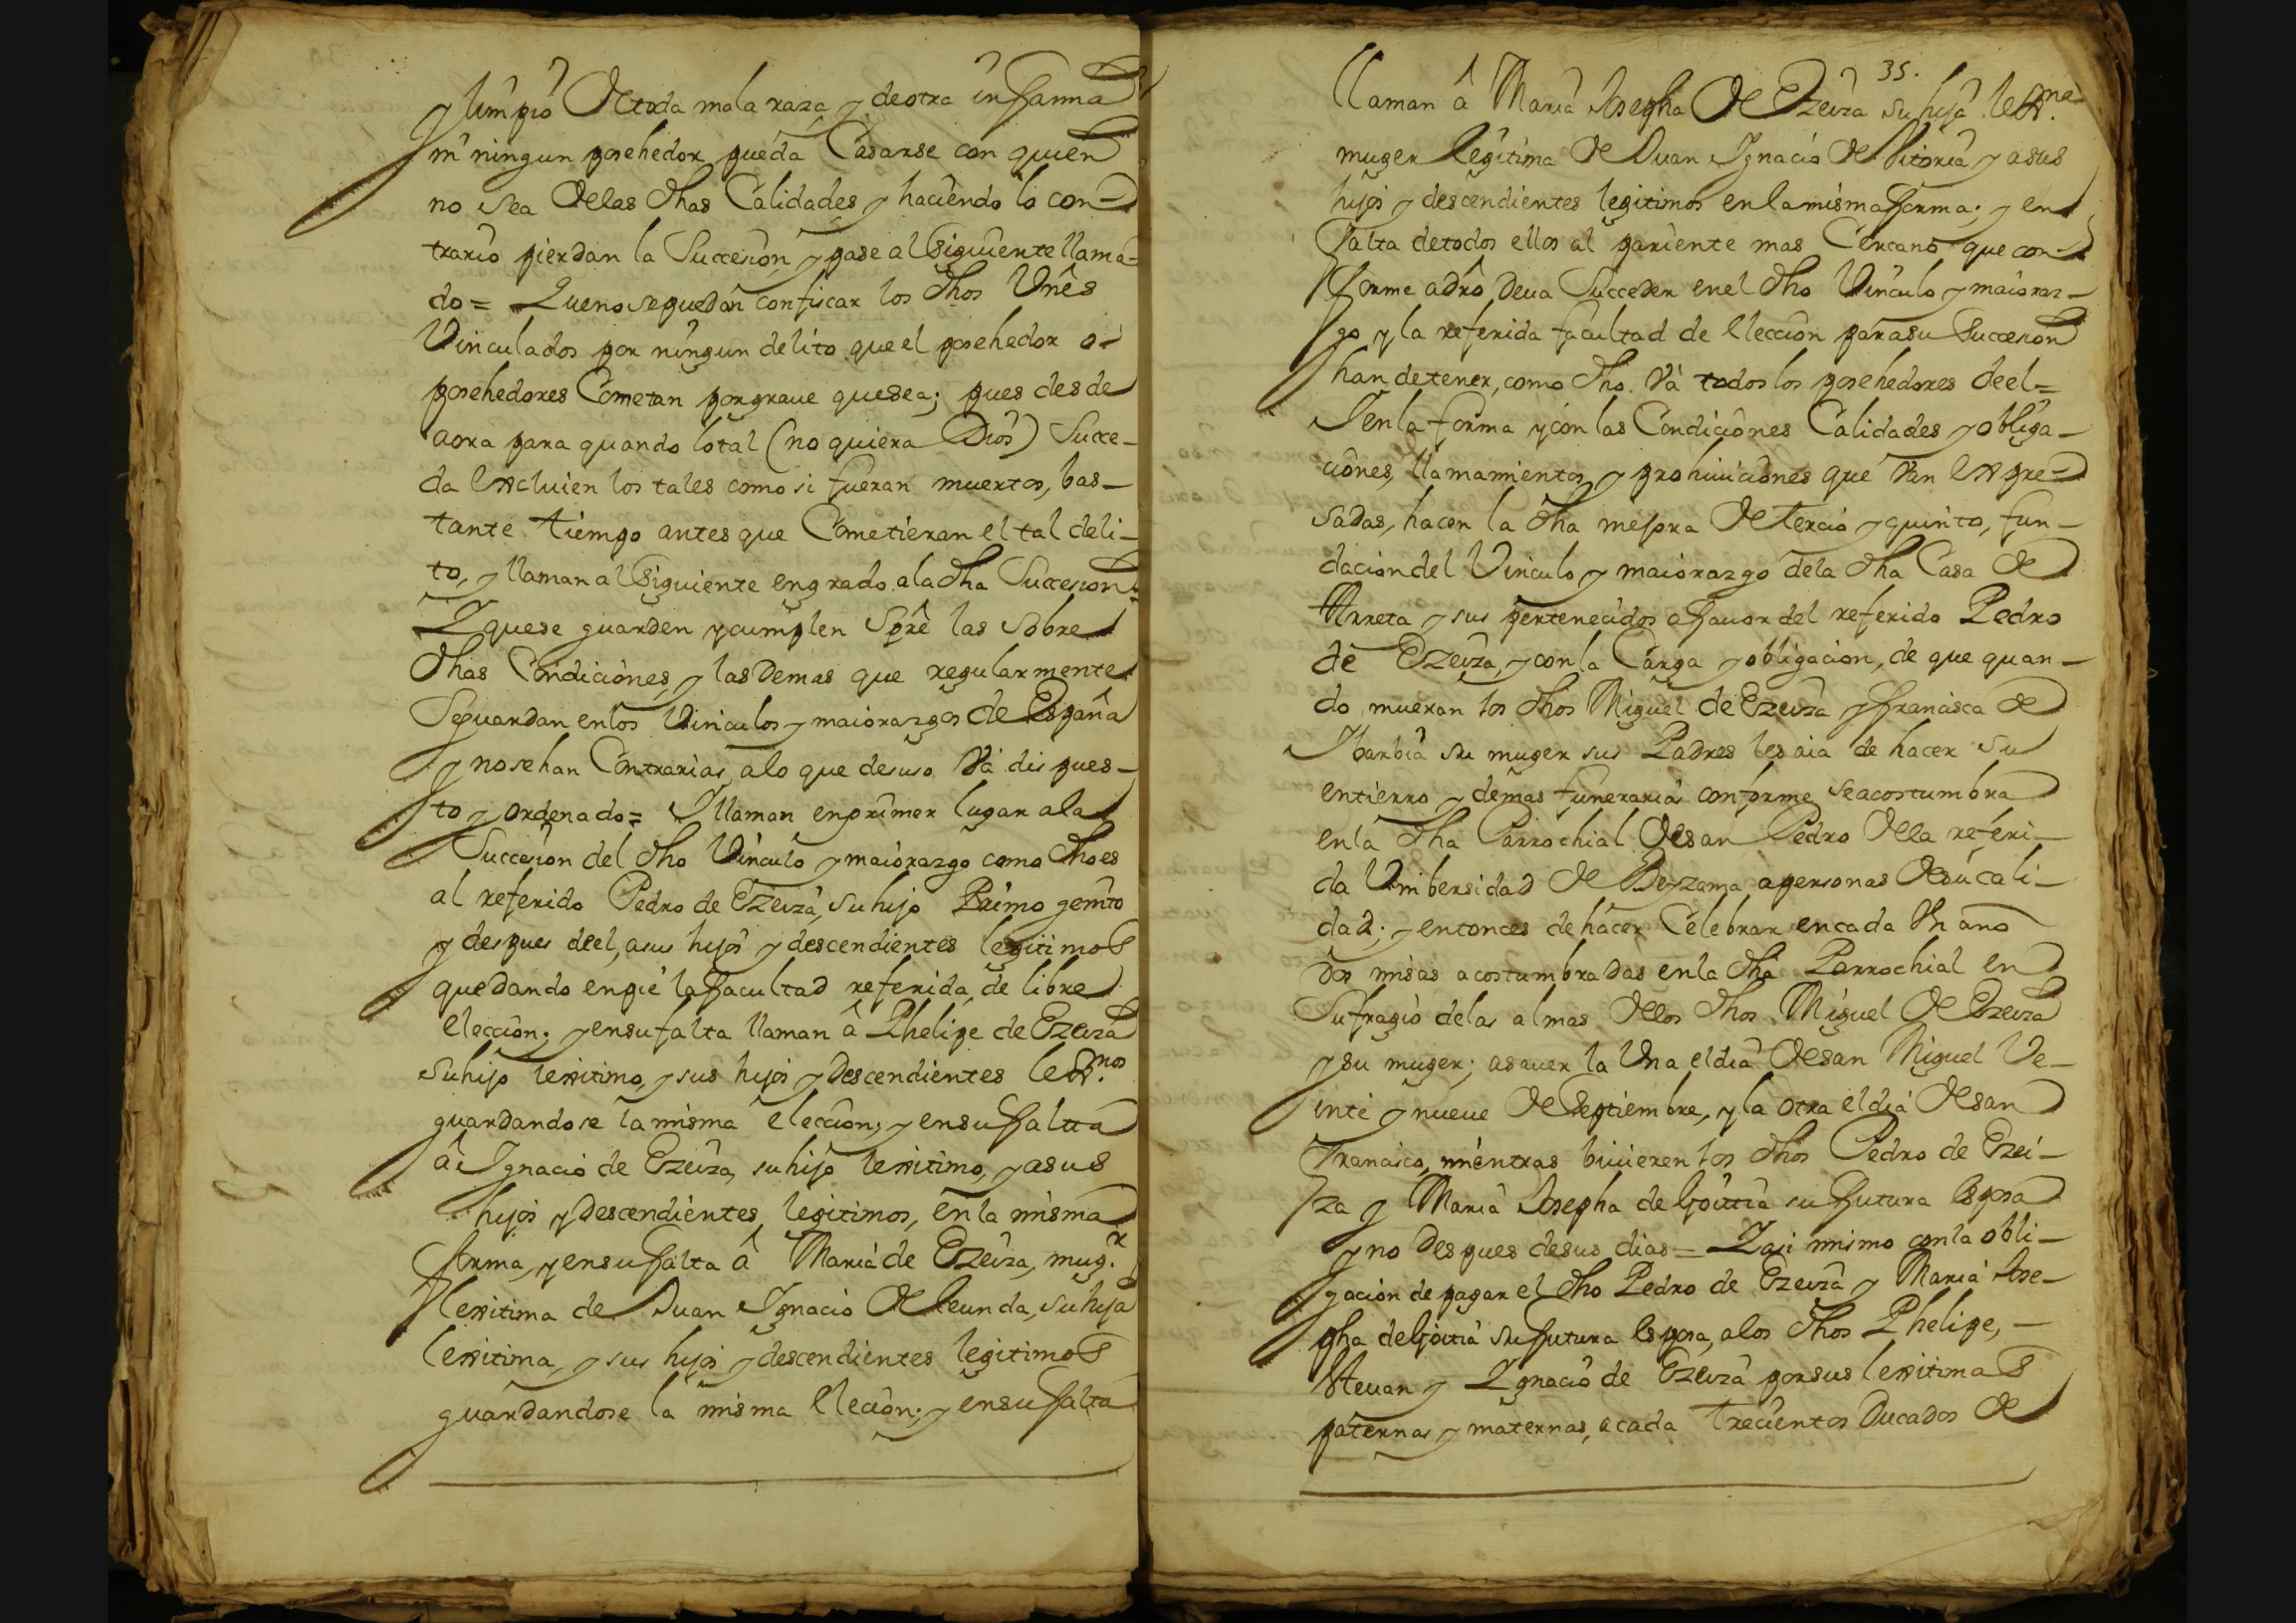 y limpio de toda mala raza, y de otra infamia
ni ningun posehedor pueda Casarse con quien
no sea de las dhas Calidades, y haciendo lo con-
trario pierdan la Succesion, y pase al Siguiente llama-
do = Que no se puedan confiscar los dhos Vnês
Vinculados por ningun delito que el posehedor o-
posehedores Cometan por graue que sea; pues desde
aora para quando lo tal (no quiera Dios) Succe-
da excluien los tales como si fueran muertos, bas-
tante tiempo antes que Cometieran el tal deli-
to, y llaman al Siguiente en grado a la dha Succesion =
Y que se guarden y cumplen Sprê las sobre
dhas Condiciones, y las Demas que regularmente
Se guardan en los Vinculos y maiorazgos de España
y no se han Contrarias, a lo que de suso Vá dispues-
to y ordenado = Y llaman en primer lugar a la
Succesion del dho Vinculo y maiorazgo como dho es
al referido Pedro de Ezeiza, su hijo Primo genito
y despues de el, a sus hijos y descendientes legitimos
quedando en pie la facultad referida de libre
eleccion; y en su falta llaman â Phelipe de Ezeiza
su hijo lexitimo, y sus hijos y Descendientes lex.mos
guardandose la misma eleccion; y en su faltta
â Ygnacio de Ezeiza, su hijo lexitimo, y a sus
hijos y Descendientes, legitimos, en la misma
forma, y en su falta â Maria de Ezeiza, mug.r
lexitima de Juan Ygnacio de leunda, su hija
lexitima, y sus hijos y descendientes legitimos
guardandose la misma elecion; y en su falta
35.
llaman â Maria Josepha de Ezeiza su hija lex.ma
muger legitima de Juan Ygnacio de Vitoria y a sus
hijos y descendientes legitimos en la misma forma; y en
falta de todos ellos al pariente mas Cercano que con-
forme a drô Deua Succeder en el dho Vinculo y maioraz-
go y la referida facultad de eleccion para su Succesion
han de tener, como dho. Vá todos los posehedores de el =
Y en la forma y con las Condiciones Calidades y obliga-
ciones, llamamientos, y prohiuiciones que Van expre-
sadas, hacen la dha mejora de tercio y quinto, fun-
dacion del Vinculo y maiorazgo de la dha Casa de
Arreta y sus pertenecidos a fauor del referido Pedro
de Ezeiza, y con la Carga y obligacion, de que quan-
do mueran los dhos Miguel de Ezeiza y francisca de
Ybarbia su muger sus Padres les aia de hacer su
entierro y demas funerarias conforme se acostumbra
en la dha Parrochial de san Pedro de la referi-
da Vnibersidad de Beyzama a personas de su cali-
dad; y entonces de hacer Celebrar en cada Vn ano
dos misas acostumbradas en la dha Parrochial en
Sufragio de las almas de los dhos Miguel de Ezeiza
y su muger; a sauer la Vna el dia de san Miguel Ve-
inte y nueue de Septiembre, y la otra el dia de san
Francisco, mientras biuieren los dhos Pedro de Ezei-
za y Maria Josepha de Goitia su futura esposa
y no Despues de sus dias = Y asi mismo con la obli-
gacion de pagar el dho Pedro de Ezeiza y Maria Jose-
pha de Goitia su futura esposa, a los dhos Phelipe, -
Esteuan y Ygnacio de Ezeiza por sus lexitimas
paternas y maternas, a cada trecientos Ducados de